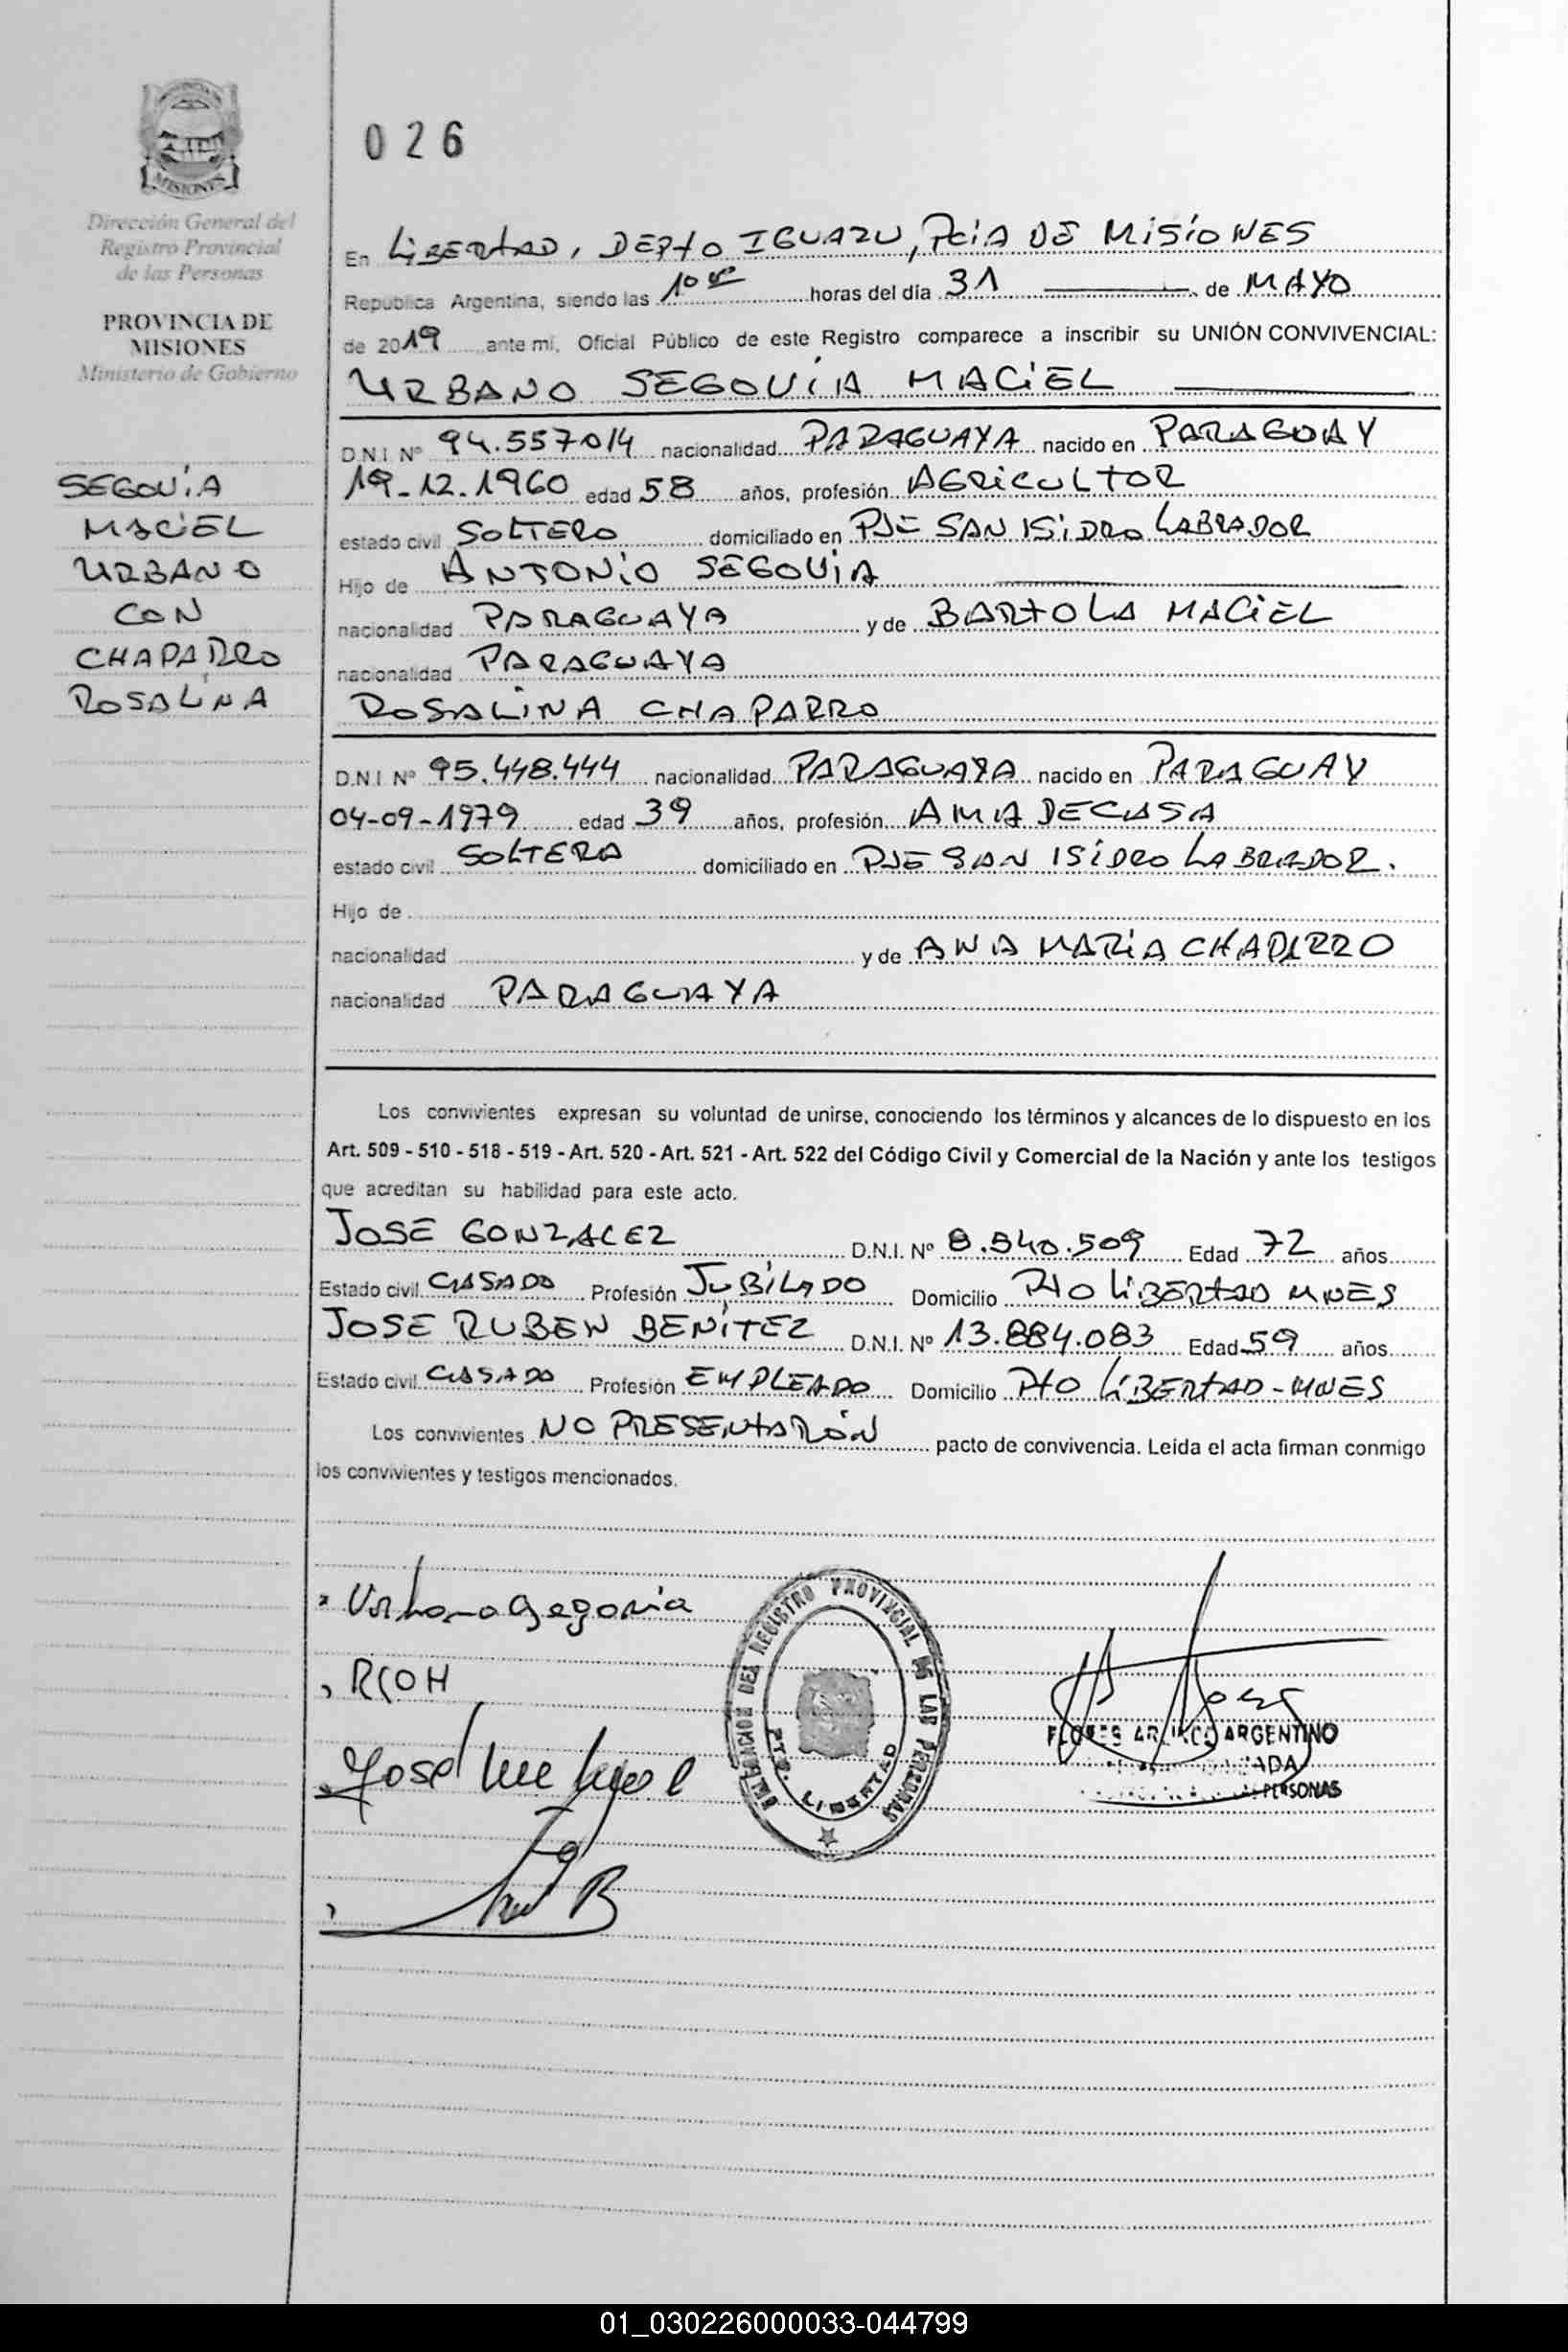 MISIONES
Dirección General del
Registro Provincial
de las Personas
PROVINCIA DE
MISIONES
Ministerio de Gobierno
SEGOVIA
MACIEL
URBANO
CON
CHAPARRO
ROSALINA
026
En LIBERTAD, DEPTO IGUAZU, PCIA DE MISIONES
Republica Argentina, siendo las 10 horas del día 31 de MAYO
de 2019 ante mi, Oficial Público de este Registro comparece a inscribir su UNIÓN CONVIVENCIAL:
URBANO SEGOVIA MACIEL
D.N.I. Nº 94.557014 nacionalidad PARAGUAYA nacido en PARAGUAY
19-12-1960 edad 58 años, profesión AGRICULTOR
estado civil SOLTERO domiciliado en PJE SAN ISIDRO LABRADOR
Hijo de ANTONIO SEGOVIA
nacionalidad PARAGUAYA y de BARTOLA MACIEL
nacionalidad PARAGUAYA
ROSALINA CHAPARRO
D.N.I. Nº 95.448.444 nacionalidad PARAGUAYA nacido en PARAGUAY
04-09-1979 edad 39 años, profesión AMA DE CASA
estado civil SOLTERA domiciliado en PJE SAN ISIDRO LABRADOR.
Hijo de
nacionalidad y de ANA MARIA CHAPARRO
nacionalidad PARAGUAYA
Los convivientes expresan su voluntad de unirse, conociendo los términos y alcances de lo dispuesto en los
Art. 509 - 510 - 518 - 519 - Art. 520 - Art. 521 - Art. 522 del Código Civil y Comercial de la Nación y ante los testigos
que acreditan su habilidad para este acto.
JOSE GONZALEZ D.N.I. Nº 8.540.509 Edad 72 años
Estado civil CASADO Profesión JUBILADO Domicilio PTO LIBERTAD MNES
JOSE RUBEN BENITEZ D.N.I. Nº 13.884.083 Edad 59 años
Estado civil CASADO Profesión EMPLEADO Domicilio PTO LIBERTAD-MNES
Los convivientes NO PRESENTARON pacto de convivencia. Leída el acta firman conmigo
los convivientes y testigos mencionados.
DEL REGISTRO PROVINCIAL DE LAS PERSONAS
PTO. LIBERTAD
ARGENTINO
PERSONAS
01_030226000033-044799